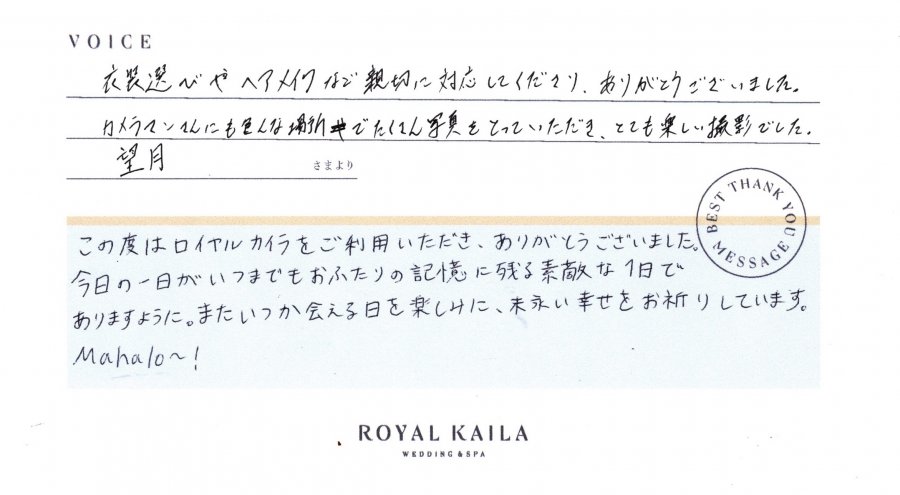 VOICE
衣装選びやヘアメイクなど親切に対応してくださり、ありがとうございました。
カメラマンさんにも色んな場所でたくさん写真をとっていただき、とても楽しい撮影でした。
望月 さまより
BEST THANK YOU MESSAGE
この度はロイヤルカイラをご利用いただき、ありがとうございました。
今日の一日がいつまでもおふたりの記憶に残る素敵な1日で
ありますように。またいつか会える日を楽しみに、末永い幸せをお祈りしています。
Mahalo〜!
ROYAL KAILA
WEDDING & SPA